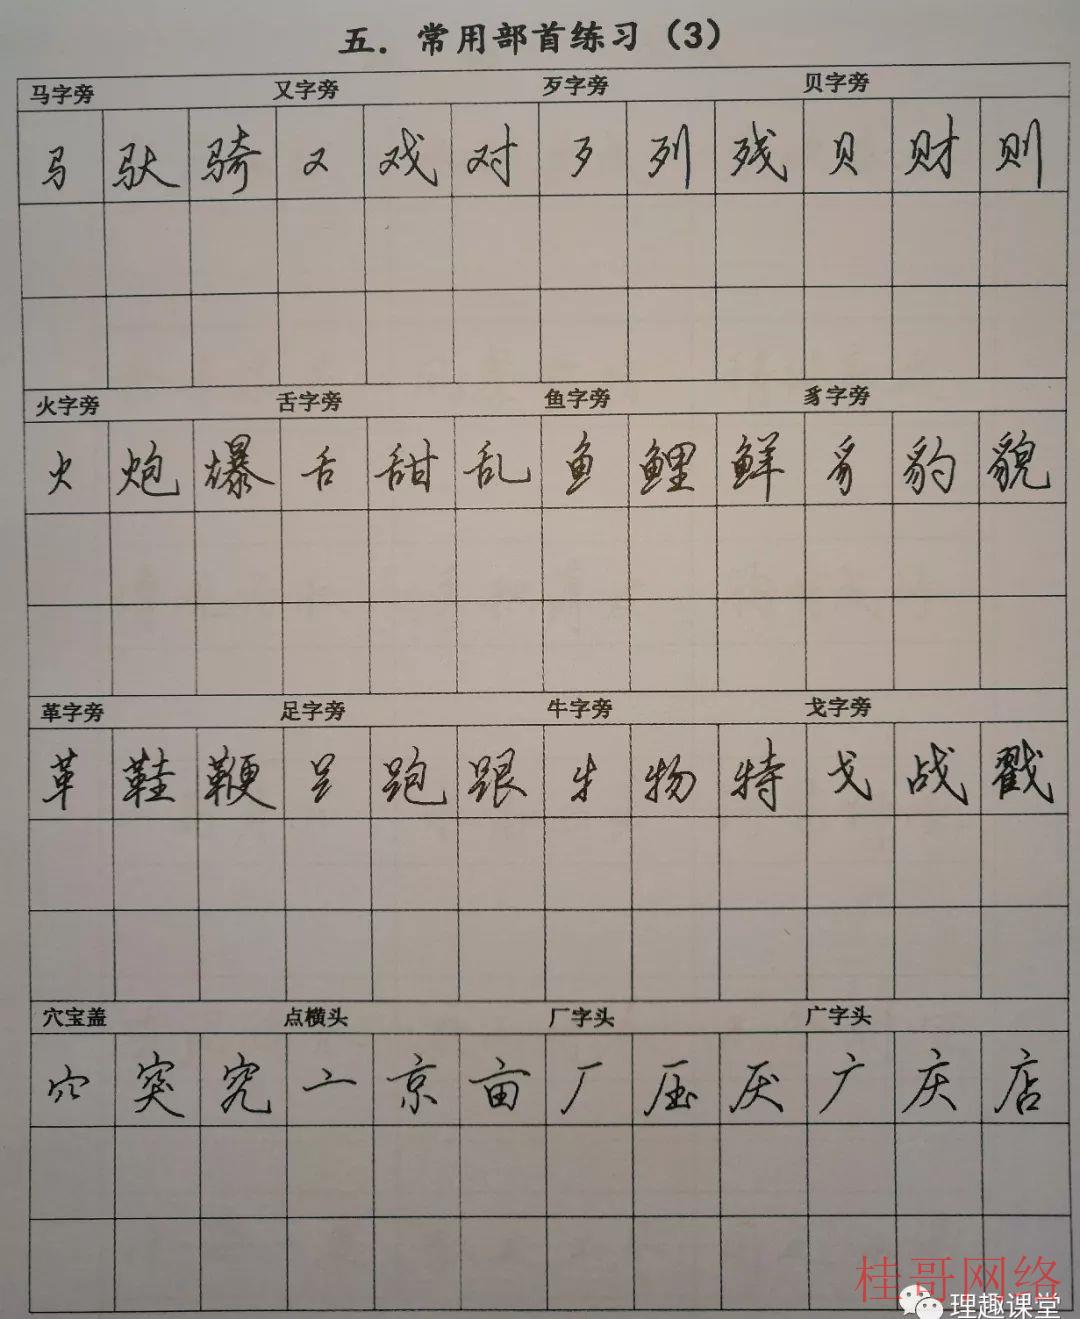 五. 常用部首练习（3）
马字旁 又字旁 歹字旁 贝字旁
马 驮 骑 又 戏 对 歹 列 残 贝 财 则
火字旁 舌字旁 鱼字旁 豸字旁
火 炮 爆 舌 甜 乱 鱼 鲤 鲜 豸 豹 貌
革字旁 足字旁 牛字旁 戈字旁
革 鞋 鞭 𧾷 跑 跟 牜 物 特 戈 战 戳
穴宝盖 点横头 厂字头 广字头
穴 突 究 亠 京 亩 厂 压 厌 广 庆 店
桂哥网络
理趣课堂